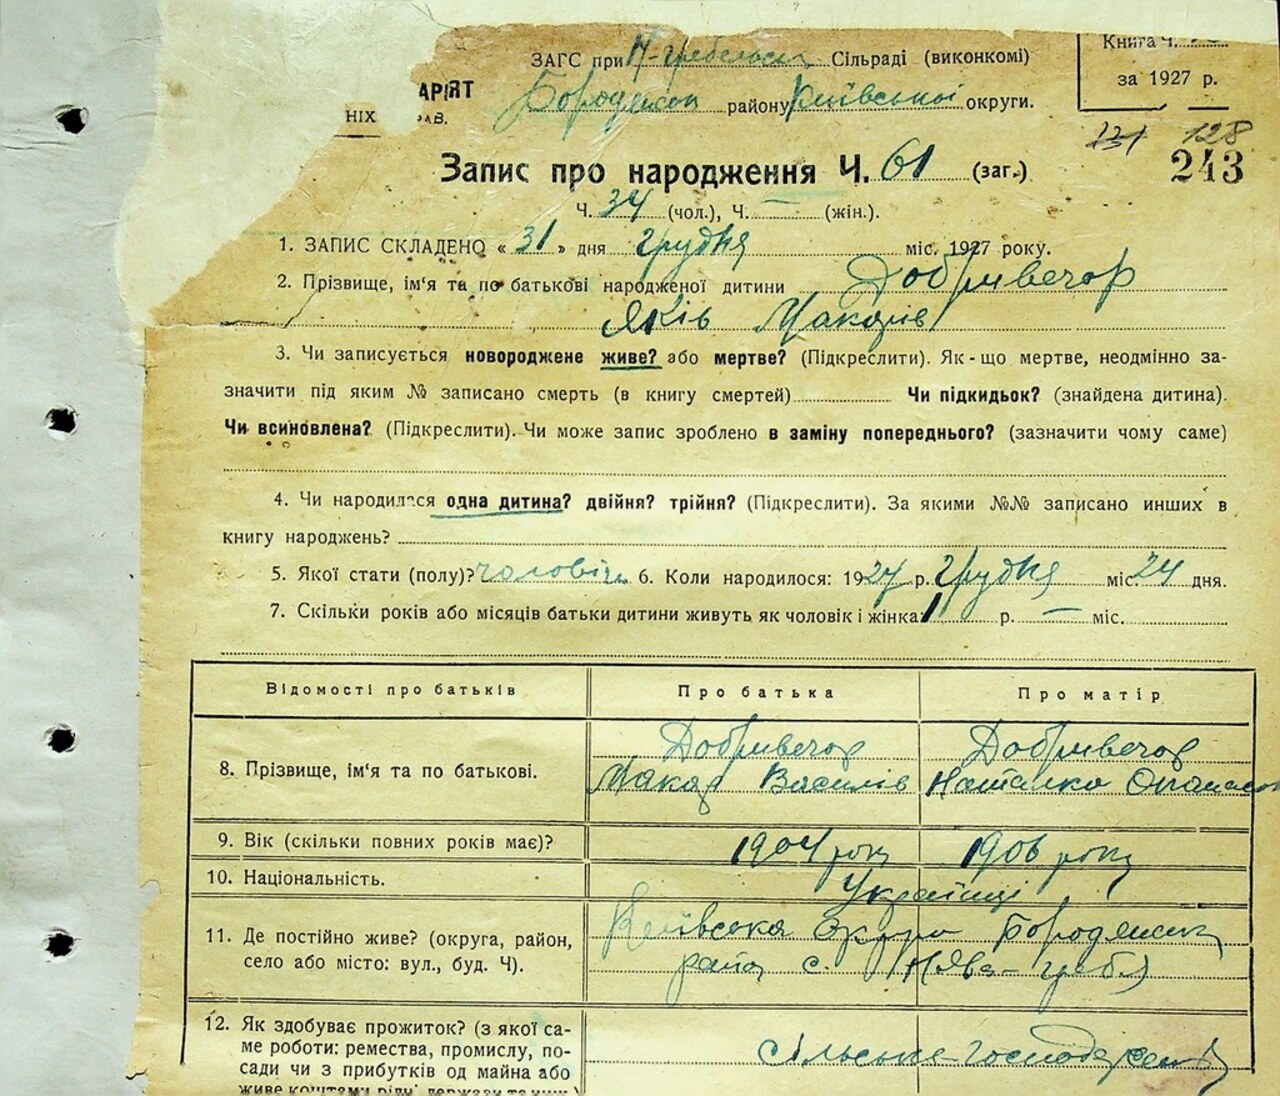 Книга Ч.
ЗАГС при Н-гребельск Сільраді (виконкомі)
за 1927 р.
АРІЯТ
Бородянськ району Київської округи.
НІХ АВ.
131 128
243
Запис про народження Ч. 61 (заг.)
Ч. 34 (чол.), Ч. — (жін.).
1. ЗАПИС СКЛАДЕНО « 31 » дня грудня міс. 1927 року.
2. Прізвище, ім‘я та по батькові народженої дитини Добривечор
Яків Макарів
3. Чи записується новороджене живе? або мертве? (Підкреслити). Як-що мертве, неодмінно за-
значити під яким № записано смерть (в книгу смертей) Чи підкидьок? (знайдена дитина).
Чи всиновлена? (Підкреслити). Чи може запис зроблено в заміну попереднього? (зазначити чому саме)
4. Чи народилася одна дитина? двійня? трійня? (Підкреслити). За якими №№ записано инших в
книгу народжень?
5. Якої стати (полу)? чоловіч 6. Коли народилося: 1927 р. грудня міс. 24 дня.
7. Скільки років або місяців батьки дитини живуть як чоловік і жінка: 1 р. — міс.
Відомості про батьків Про батька Про матір
Добривечор Добривечор
8. Прізвище, ім‘я та по батькові. Макар Василів Наталка Опанасов
9. Вік (скільки повних років має)? 1904 року 1906 року
10. Національність. Українці
11. Де постійно живе? (округа, район, Київська округа Бородянськ
село або місто: вул., буд. Ч). район с. Нова-гребля
12. Як здобуває прожиток? (з якої са-
ме роботи: ремества, промислу, по- сільське-господарство
сади чи з прибутків од майна або
живе коштами рідні, держави та инш.)